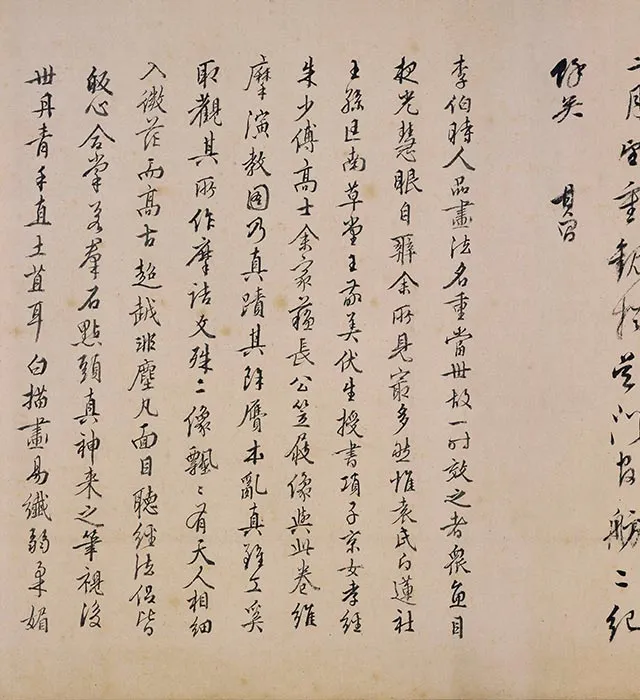 二月望重觀於門官舫二紀
餘矣　其昌
李伯時人品畫法名重當世故一時效之者衆魚目
夜光慧眼自辨余所見最多然惟袁氏白蓮社
王孫匡南草堂王敬美伏生授書項子京女孝經
朱少傅高士余家蘇長公笠屐像與此卷維
摩演教圖乃真蹟其餘贋本亂真雖工奚
取觀其所作摩詰文殊二像飄〻有天人相細
入微茫而高古超越非塵凡面目聽經法侶皆
皈心合掌若羣石點頭真神來之筆視後
世丹青手直土苴耳白描畫易纖弱柔媚